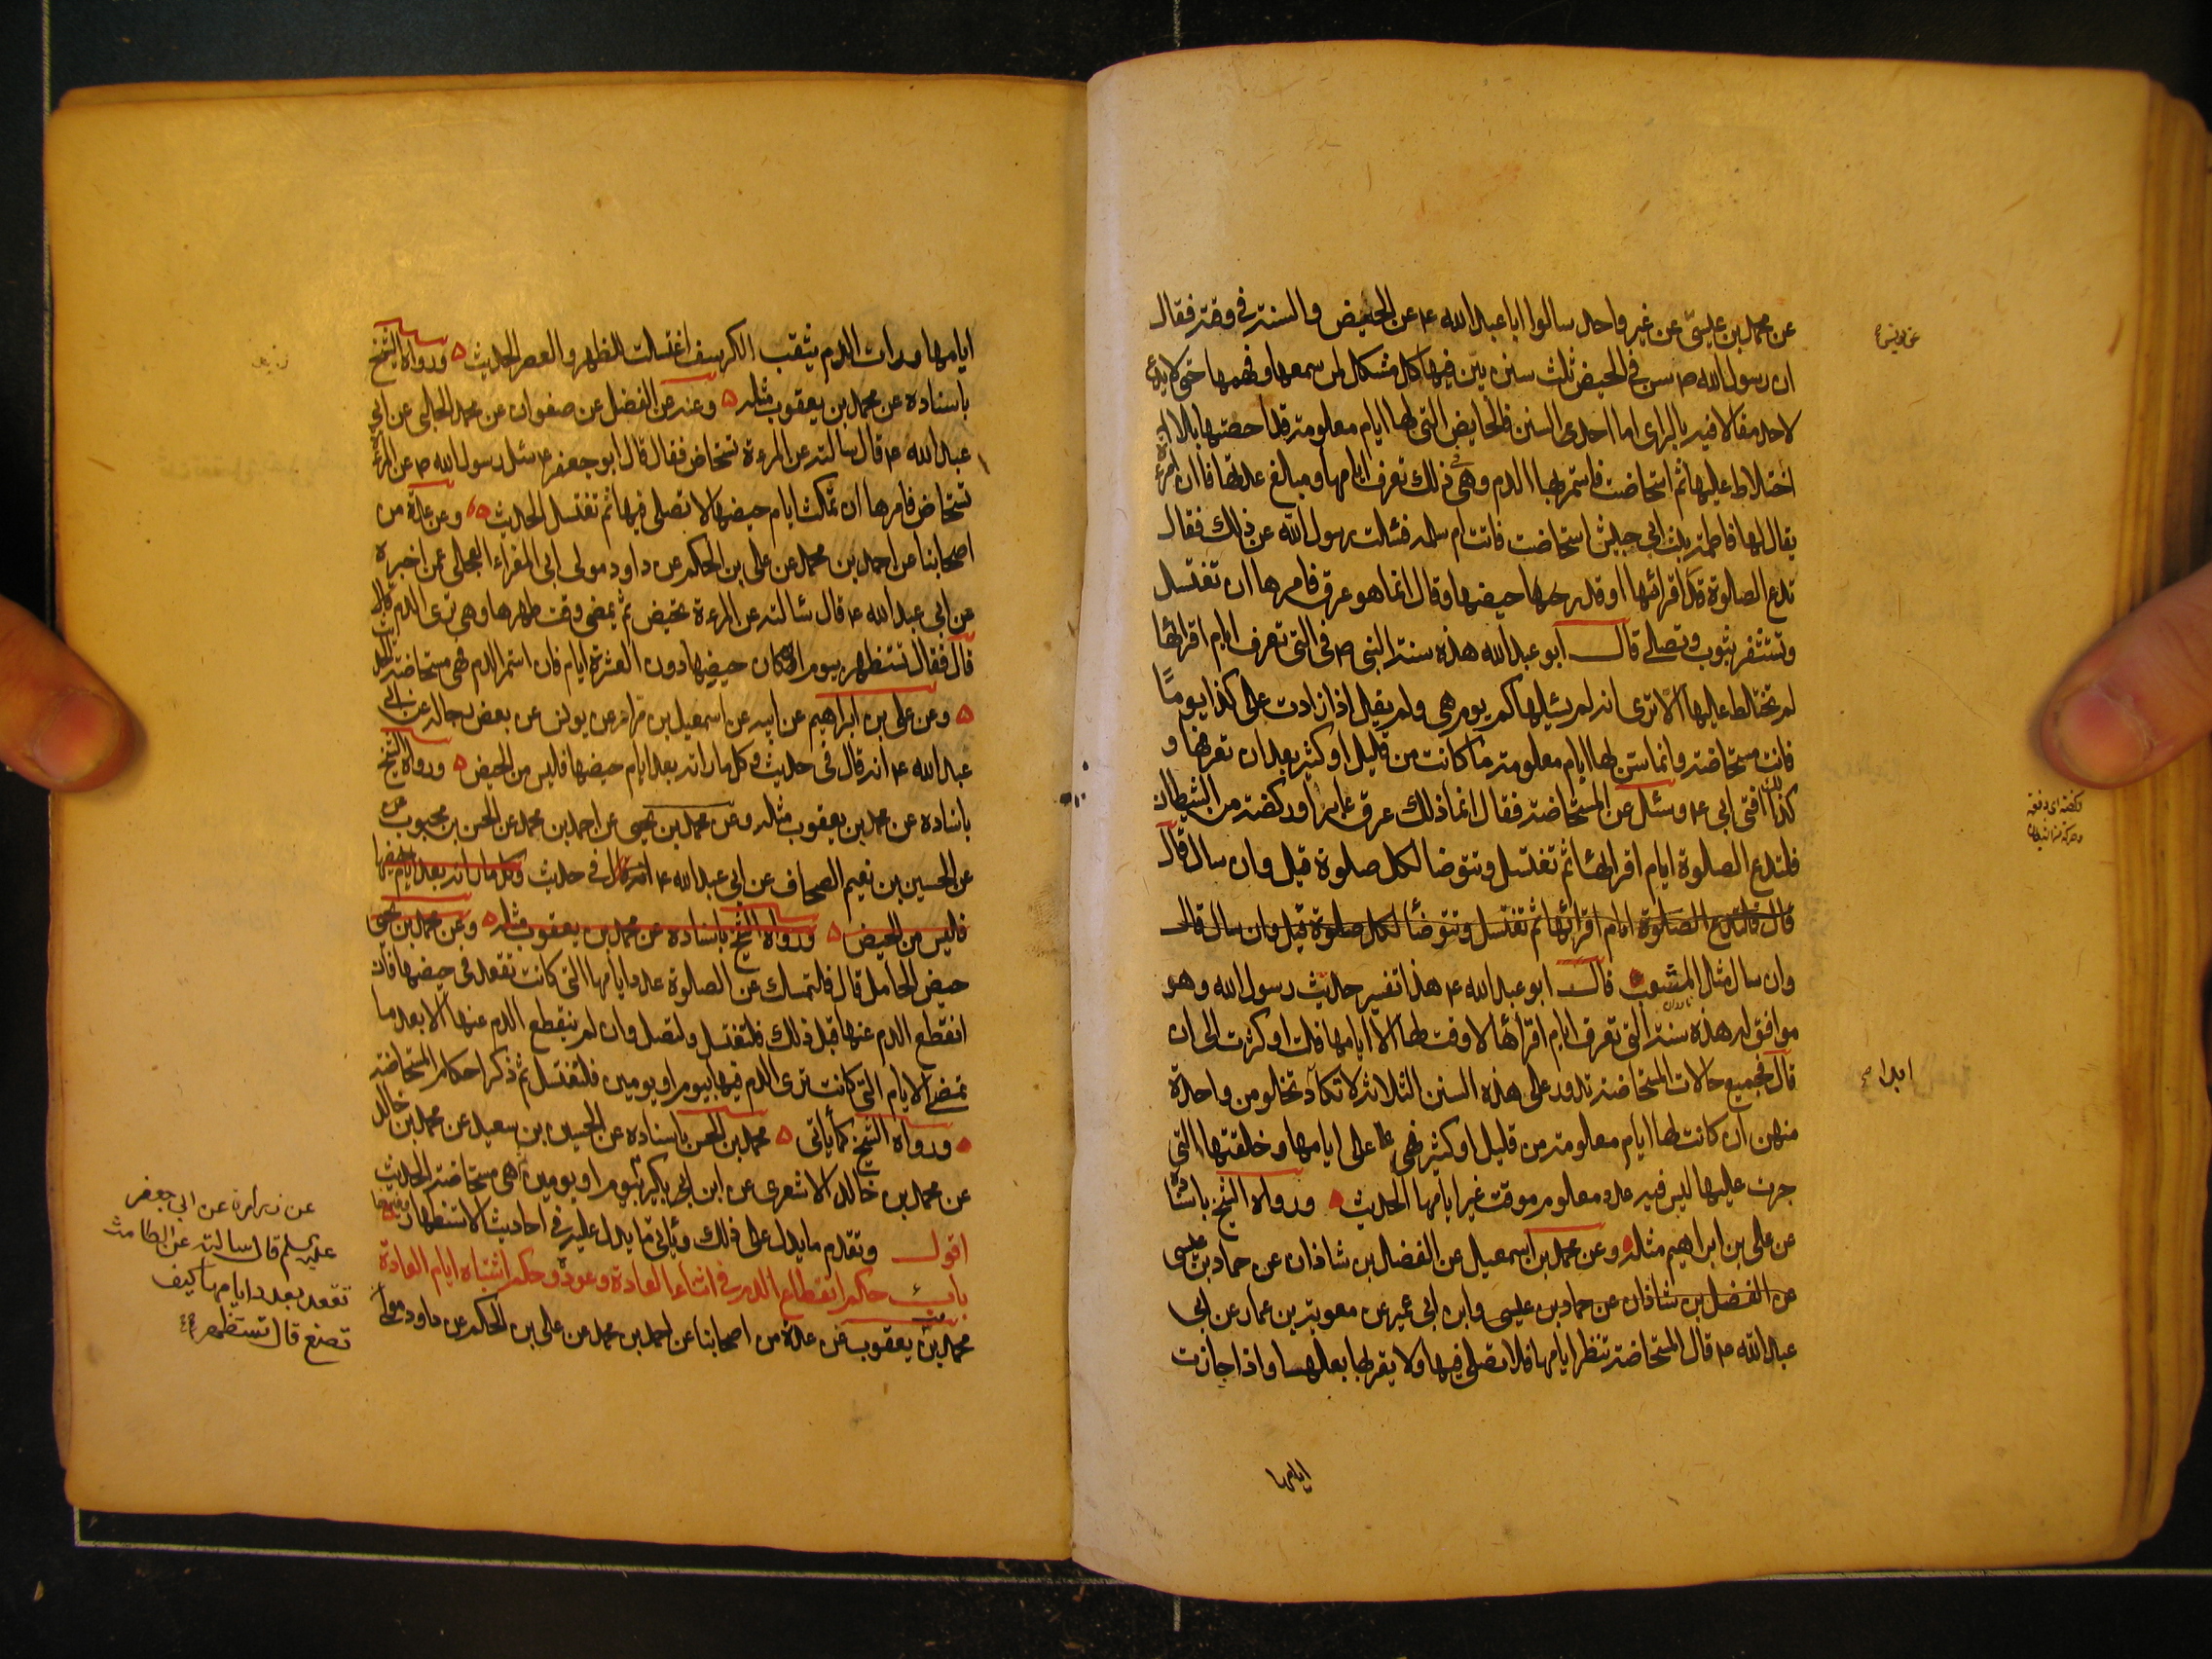 عن محمد بن عيسى عن غير واحد سالوا ابا عبد الله ع عن الحيض والسنة في وقته فقال
عن يونس
ان رسول الله ص سن في الحيض ثلث سنن بين فيها كل مشكل لمن سمعها وفهمها حتى لا يدع
لاحد مقالا فيه بالراى اما احدى السنن فالحايض التى لها ايام معلومة قد احصتها بلا
اختلاط عليها ثم استحاضت فاستمر بها الدم وهى في ذلك تعرف ايامها ومبلغ عددها فان امرءة
يقال لها فاطمة بنت ابي حبيش استحاضت فاتت ام سلمة فسئلت رسول الله عن ذلك فقال
تدع الصلوة قدر اقرائها او قدر حيضها وقال انما هو عرق فامرها ان تغتسل
وتستثفر بثوب وتصلى قال ابو عبد الله هذه سنة النبى ص في التى تعرف ايام اقرائها
لم تختلط عليها الا ترى انه لم يسئلها كم يوم هى ولم يقل اذا زادت على كذا يوما
فانت مستحاضة وانما سن لها ايام معلومة ما كانت من قليل او كثير بعد ان تعرفها و
كذلك افتى ابى ع وسئل عن المستحاضة فقال انما ذلك عرق عابر او ركضة من الشيطان
ركضة اى دفعة
وحركة من الشيطان
فلتدع الصلوة ايام اقرائها ثم تغتسل وتتوضا لكل صلوة قيل وان سال قال
قال فلتدع الصلوة ايام اقرائها ثم تغتسل وتتوضأ لكل صلوة قيل وان سال قال
وان سال مثل المثعب قال ابو عبد الله ع هذا تفسير حديث رسول الله وهو
موافق له هذه سنة التى تعرف ايام اقرائها لا وقت لها الا ايامها قلت او كثرت الى ان
قال فجميع حالات المستحاضة تدور على هذه السنن الثلاثة لا تكاد تخلو من واحدة
ابدا صح
منهن ان كانت لها ايام معلومة من قليل او كثير فهى على ايامها وخلقتها التى
جرت عليها ليس فيه عدد معلوم موقت غير ايامها الحديث ورواه الشيخ باسناده
عن على بن ابراهيم مثله وعن محمد بن اسمعيل عن الفضل بن شاذان عن حماد بن عيسى
عن الفضل بن شاذان عن حماد بن عيسى وابن ابى عمير عن معوية بن عمار عن ابى
عبد الله ع قال المستحاضة تنظر ايامها فلا تصلى فيها ولا يقربها بعلها واذا جازت
ايامها
ايامها ورات الدم يثقب الكرسف اغتسلت للظهر والعصر الحديث ورواه الشيخ
باسناده عن محمد بن يعقوب مثله وعنه عن الفضل عن صفوان عن محمد الحلبى عن ابى
عبد الله ع قال سالته عن المرءة تستحاض فقال قال ابو جعفر ع سئل رسول الله ص عن المرءة
تستحاض فامرها ان تمكث ايام حيضها لا تصلى فيها ثم تغتسل الحديث وعن عدة من
اصحابنا عن احمد بن محمد عن على بن الحكم عن داود مولى ابى المغراء العجلى عمن اخبره
عن ابى عبد الله ع قال سئالته عن المرءة تحيض ثم يمضى وقت طهرها وهى ترى الدم قال
قال فقال تستظهر بيوم ان كان حيضها دون العشرة ايام فان استمر الدم فهى مستحاضة
وعن على بن ابراهيم عن ابيه عن اسمعيل بن مرار عن يونس عن بعض رجاله عن ابى
عبد الله ع انه قال في حديث وكل ما راته بعد ايام حيضها فليس من الحيض ورواه الشيخ
باسناده عن محمد بن يعقوب مثله وعن محمد بن يحيى عن احمد بن محمد عن الحسن بن محبوب
عن الحسين بن نعيم الصحاف عن ابى عبد الله ع انه قال في حديث وكل ما راته بعد ايام حيضها
فليس من الحيض ورواه الشيخ باسناده عن محمد بن يعقوب مثله وعن محمد بن يحيى
حيض الحامل قال فلتمسك عن الصلوة عدد ايامها التى كانت تقعد فى حيضها فان
انقطع الدم عنها قبل ذلك فلتغتسل ولتصل وان لم ينقطع الدم عنها الا بعد ما
تمضى الايام التى كانت ترى الدم فيها بيوم او يومين فلتغتسل ثم ذكر احكام المستحاضة
ورواه الشيخ كما يأتى محمد بن الحسن باسناده عن الحسين بن سعيد عن محمد بن خالد
عن محمد بن خالد الاشعرى عن ابن بكير بيوم او يومين ثم هى مستحاضة الحديث
عن زرارة عن ابى جعفر
عليه السلم قال سالته عن الطامث
تقعد بعدد ايامها كيف
تصنع قال تستظهر
اقول وتقدم ما يدل على ذلك ويأتى ما يدل عليه في احاديث الاستظهار وغيرها
باب حكم انقطاع الدم في اثناء العادة وعوده وحكم اشتباه ايام العادة
محمد بن يعقوب عن عدة من اصحابنا عن احمد بن محمد عن على بن الحكم عن داود مولى